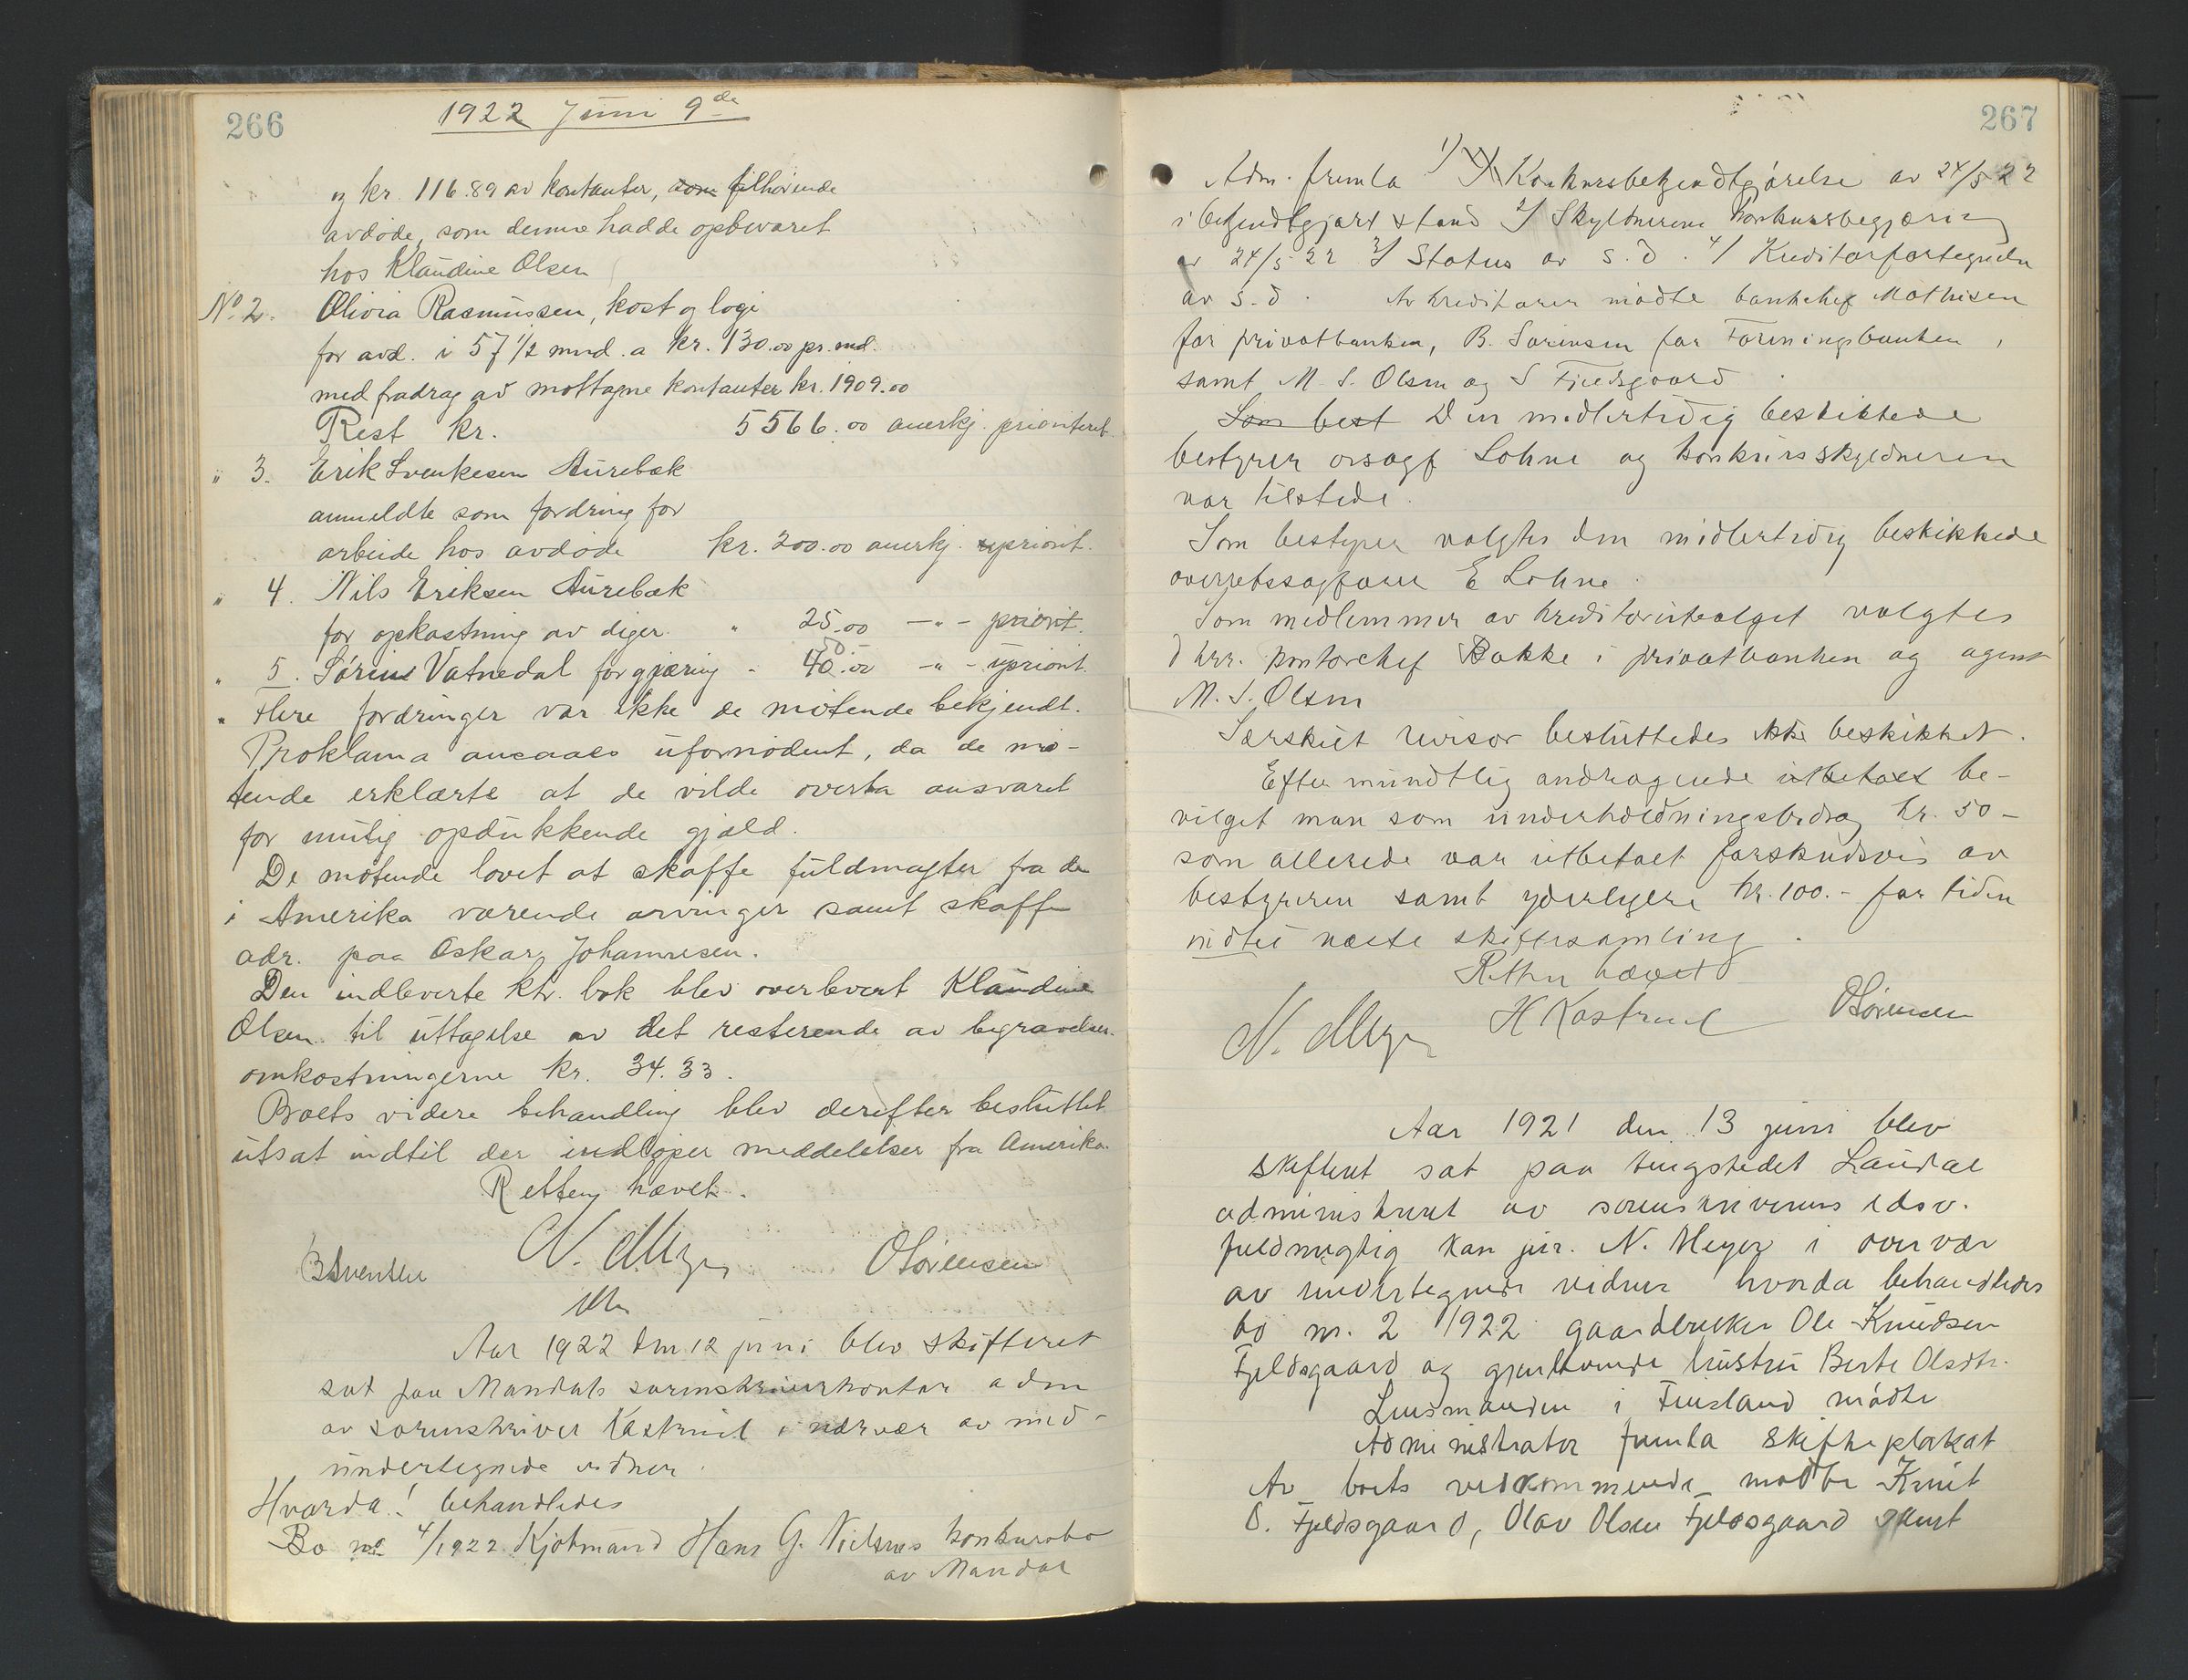 266
1922 Juni 9de
og kr. 116.89 av kontanter, som tilhørende
avdøde, som denne hadde opbevaret
hos Klaudine Olsen
No. 2. Olivia Rasmussen, kost og logi
for avd. i 57 1/2 mnd. a kr. 130.00 pr. md.
med fradrag av mottagne kontanter kr. 1909.00
Rest kr. 5566.00 anerkj. prioriteret.
" 3. Erik Svenkesen Aurebæk
anmeldte som fordring for
arbeide hos avdøde kr. 200.00 anerkj. upriorit.
" 4. Nils Eriksen Aurebæk
for opkastning av diger. " 25.00 -"- priorit.
" 5. Sørine Vatnedal for gjæring - 40.00 -"- upriorit.
" Flere fordringer var ikke de møtende bekjendt.
Proklama ansaaes ufornødent, da de mø-
tende erklærte at de vilde overta ansvaret
for mulig opdukkende gjæld.
De møtende lovet at skaffe fuldmagter fra de
i Amerika værende arvinger samt skaffe
adr. paa Oskar Johannesen.
Den indleverte ktr. bok blev overlevert Klaudine
Olsen til uttagelse av det resterende av begravelses-
omkostningerne kr. 34.33.
Boets videre behandling blev derefter besluttet
utsat indtil der indløper meddelelser fra Amerika.
Retten hævet.
BSvensen N. Meyer OSørensen
Aar 1922 den 12 juni blev skifteret
sat paa Mandals sorenskriverkontor adm
av sorenskriver Kastrud i nærvær av med-
undertegnede vidner.
Hvorda! behandledes
Bo no 4/1922 Kjøbmand Hans G. Nielsens konkursbo
av Mandal
267
Adm. fremla 1/ Konkursbekjendtgjørelse av 24/5 22
i bekjendtgjort stand 2/ Skyldnerens konkursbegjæring
av 24/5 22 3/ Status av s.d. 4/ Kreditorfortegnelse
av s.d. Av kreditorer mødte bankchef Mathisen
for privatbanken, B. Sørensen for Foreningsbanken,
samt M. S. Olsen og S Fjeldsgaard.
Som best Den midlertidig beskikkede
bestyrer orsagf Lohne og konkursskyldneren
var tilstede.
Som bestyrer valgtes den midlertidig beskikkede
overretssagfører E Lohne.
Som medlemmer av kreditorutvalget valgtes
d'hrr. kontorchef Bakke i privatbanken og agent
M. S. Olsen
Særskilt revisor besluttedes ikke beskikket.
Efter mundtlig andragende utbetalt be-
vilget man som underholdningsbidrag kr. 50-
som allerede var utbetalt forskudsvis av
bestyreren samt yderligere kr. 100.- for tiden
indtil næste skiftesamling.
Retten hævet
N. Meyer H Kastrud OSørensen
Aar 1921 den 13 juni blev
skifteret sat paa tingstedet Laudal
administreret av sorenskriverens edsv.
fuldmægtig kan jur. N. Meyer i overvær
av undertegnede vidner hvorda behandledes
bo nr. 2 1922 gaardbruker Ole Knudsen
Fjeldsgaard og gjenlevende hustru Berte Olsdtr.
Lensmanden i Finsland mødte
Administrator fremla skifteplakat
Av boets vedkommende mødte Knut
O. Fjeldsgaard, Olav Olsen Fjeldsgaard samt